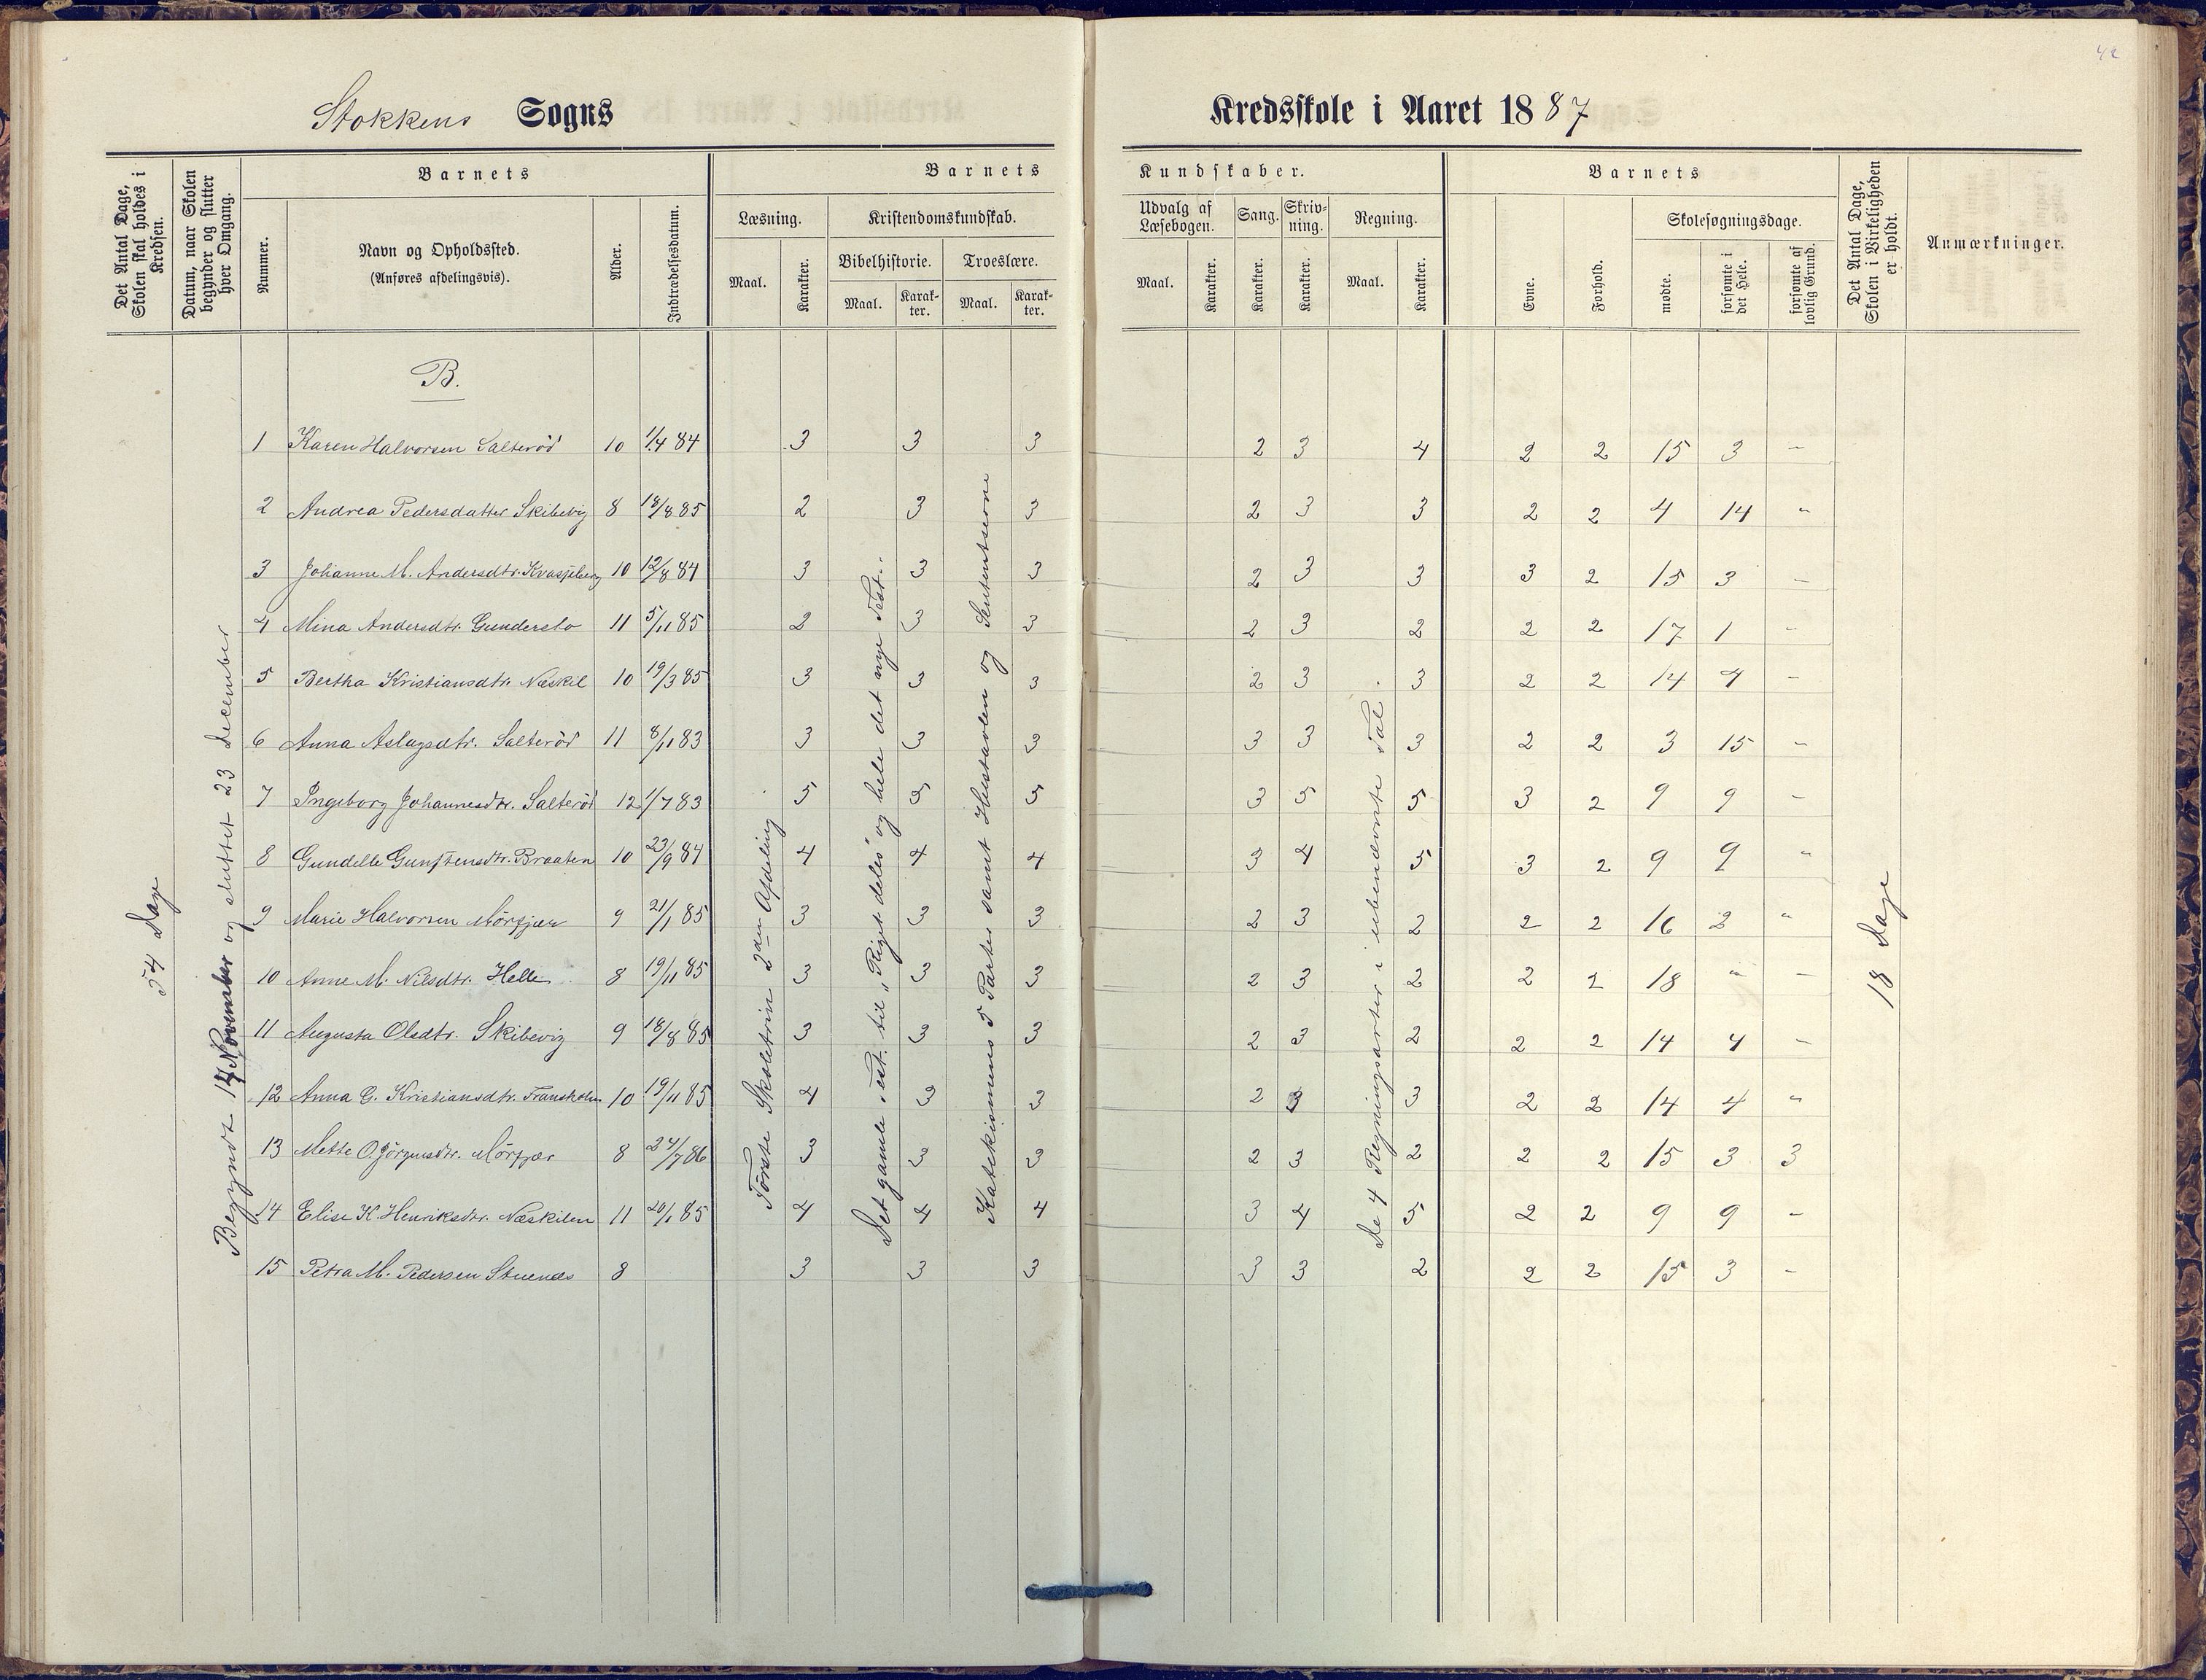 42
Stokkens Sogns
Kredsskole i Aaret 1887
Det Antal Dage, Skolen skal holdes i Kredsen.
Datum, naar Skolen begynder og slutter hver Omgang.
Barnets
Nummer.
Navn og Opholdssted.
(Anføres afdelingsvis).
Alder.
Indtrædelsesdatum.
Barnets
Læsning.
Kristendomskundskab.
Maal.
Karakter.
Bibelhistorie.
Troeslære.
Maal.
Karakter.
Maal.
Karakter.
Kundskaber.
Udvalg af Læsebogen.
Sang.
Skrivning.
Regning.
Maal.
Karakter.
Karakter.
Karakter.
Maal.
Karakter.
Barnets
Evne.
Forhold.
Skolesøgningsdage.
mødte.
forsømte i det Hele.
forsømte af lovlig Grund.
Det Antal Dage, Skolen i Virkeligheden er holdt.
Anmærkninger.
54 Dage
Begyndt 14 November og sluttet 23 December
B.
1 Karen Halvorsen Salterød 10 1/4 84 3 3 3 2 3 4 2 2 15 3 –
2 Andrea Pedersdatter Skibevig 8 18/8 85 2 3 3 2 3 3 2 2 4 14 "
3 Johanne M. Andersdtr. 10 12/8 84 3 3 3 2 3 3 3 2 15 3 –
4 Mina Andersdtr. Gundersto 11 5/11 85 2 3 3 2 3 2 2 2 17 1 –
5 Bertha Kristiansdtr. Næskil 10 19/3 85 3 3 3 2 3 3 2 2 14 4 –
6 Anna Aslagsdtr. Salterød 11 8/11 83 3 3 3 3 3 3 2 2 3 15 –
7 Ingeborg Johannesdtr. Salterød 12 1/7 83 5 5 5 3 5 5 3 2 9 9 –
8 Gundelle Gunstensdtr. Braaten 10 23/9 84 4 4 4 3 4 5 3 2 9 9 "
9 Marie Halvorsen Mørfjær 9 21/1 85 3 3 3 2 3 2 2 2 16 2 "
10 Anne M. Nilsdtr. Helle 8 19/11 85 3 3 3 2 3 2 2 2 18 " –
11 Augusta Olsdtr. Skibevig 9 18/8 85 3 3 3 2 3 2 2 2 14 4 –
12 Anna G. Kristiansdtr. Fransholm 10 19/11 85 4 3 3 2 3 3 2 2 14 4 "
13 Mette O. Jörgensdtr. Mørfjær 8 24/7 86 3 3 3 2 3 2 2 2 15 3 3
14 Elise K. Henriksdtr. Næskilen 11 20/1 85 4 4 4 3 4 5 2 2 9 9 –
15 Petra M. Pedersen Stuenes 8 3 3 3 3 3 2 2 2 15 3 –
Første Skoletrin 2den Afdeling
Det gamle Test. til „Riget deles" og hele det nye Test.
Katekismens 5 Parter samt Hustavlen og Sententserne
De 4 Regningsarter i ubenævnte Tal
18 Dage